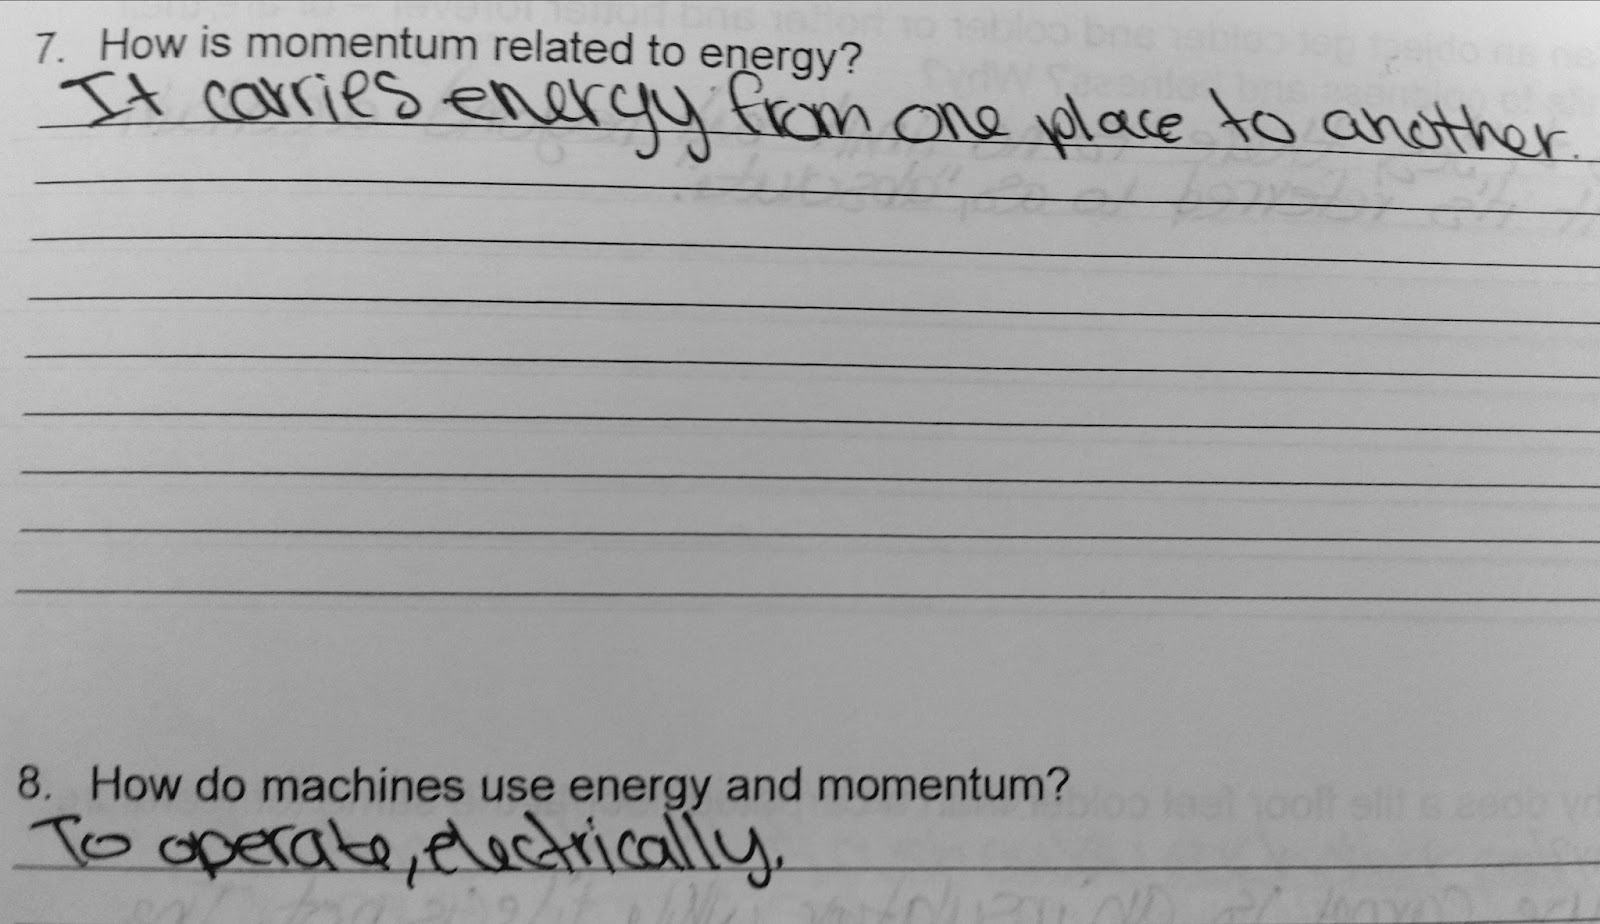 7. How is momentum related to energy?
It carries energy from one place to another.
8. How do machines use energy and momentum?
To operate, electrically.